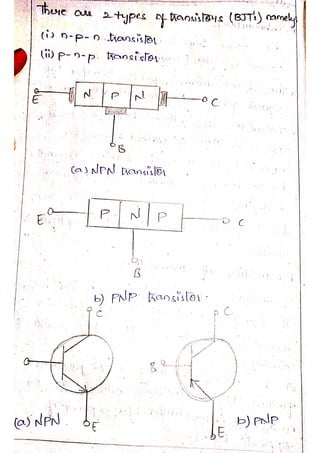 There are 2 types of transistors (BJT's) namely
(i) n-p-n transistor
(ii) p-n-p transistor
E N P N C
B
(a) NPN transistor
E P N P C
B
b) PNP transistor.
C C
B
(a) NPN E E b) PNP